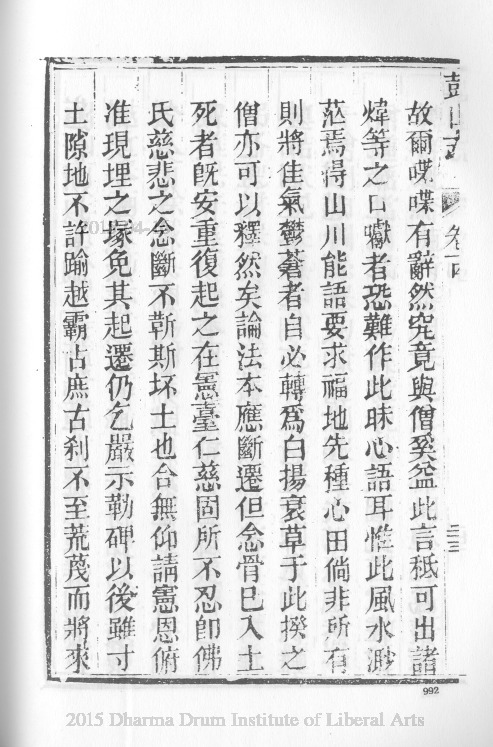 故爾喋喋有辭然究竟與僧奚益此言秪可出諸
煒等之口讞者恐難作此昧心語耳惟此風水渺
茫焉得山川能語要求福地先種心田倘非所有
則將佳氣鬱蒼者自必轉為白揚衰草于此揆之
僧亦可以釋然矣論法本應斷遷但念骨已入土
死者既安重復起之在憲臺仁慈固所不忍卽佛
氏慈悲之念斷不靳斯坏土也合無仰請憲恩俯
准現埋之塚免其起遷仍乞嚴示勒碑以後雖寸
土隙地不許踰越霸占庶古刹不至荒蔑而將來
卷
992
2015 Dharma Drum Institute of Liberal Arts